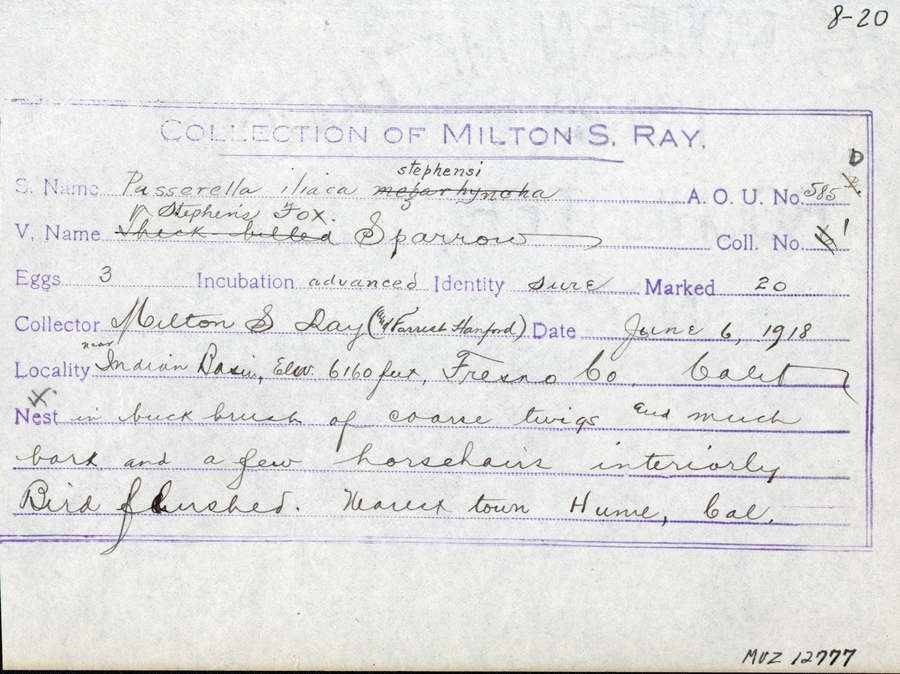 8-20
COLLECTION OF MILTON S. RAY.
stephensi D
S. Name Passerella iliaca megarhyncha A. O. U. No. 585
Stephens Fox.
V. Name billed Sparrow Coll. No. 1
Eggs 3 Incubation advanced Identity sure Marked 20
Collector Milton S Ray (Forrest Hanford) Date June 6, 1918
near
Locality Indian Basin, Elev. 6160 feet, Fresno Co. Calif
X.
Nest in buck brush of coarse twigs and much
bark and a few horsehairs interiorly
Bird flushed. Nearest town Hume, Cal.
MVZ 12777